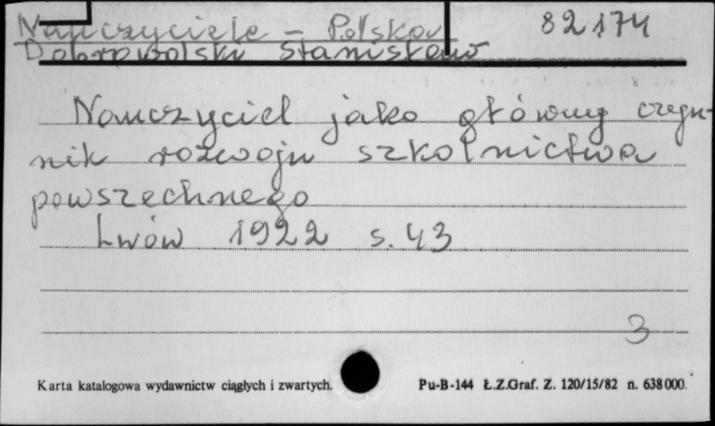 Nauczyciele – Polska 82174
Dobrowolski Stanisław
Nauczyciel jako główny czyn-
nik rozwoju szkolnictwa
powszechnego
Lwów 1922 s. 43
3
Karta katalogowa wydawnictw ciągłych i zwartych. Pu-B-144 Ł.Z.Graf. Z. 120/15/82 n. 638000.